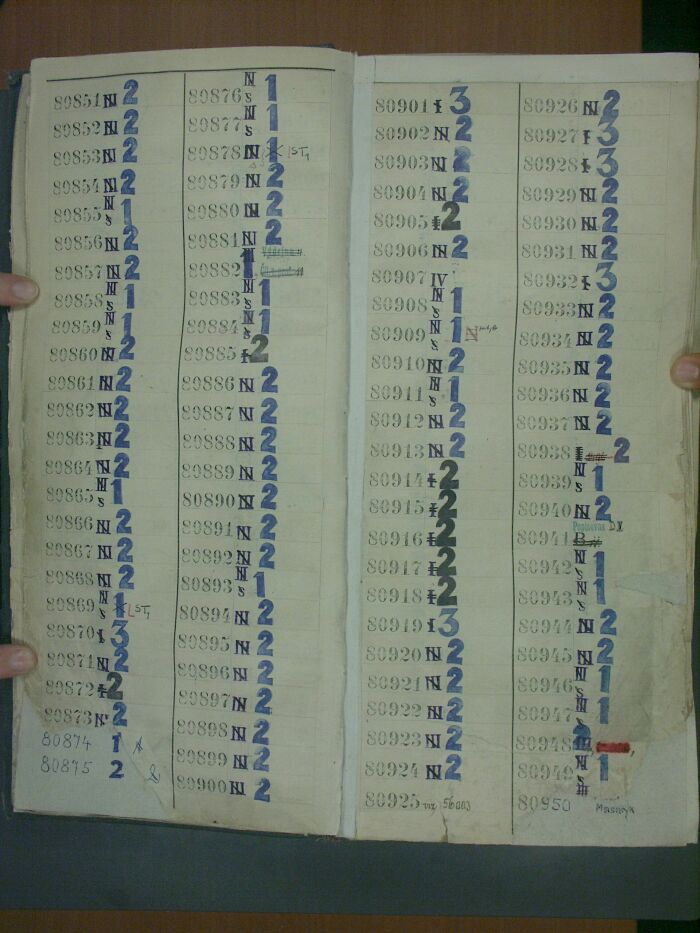 80851 N 2
80852 N 2
80853 N 2
80854 N 2
80855 N s 1
80856 N 2
80857 N 2
80858 N s 1
80859 N s 1
80860 N 2
80861 N 2
80862 N 2
80863 N 2
80864 N 2
80865 N s 1
80866 N 2
80867 N 2
80868 N 2
80869 N s 1
80870 I 3
80871 N 2
80872 I 2
80873 N 2
80874 1
80875 2
80876 N s 1
80877 N s 1
80878 N 1
80879 N 2
80880 N 2
80881 N 2
80882 1
80883 N s 1
80884 N s 1
80885 I 2
80886 N 2
80887 N 2
80888 N 2
80889 N 2
80890 N 2
80891 N 2
80892 N 2
80893 N s 1
80894 N 2
80895 N 2
80896 N 2
80897 N 2
80898 N 2
80899 N 2
80900 N 2
80901 I 3
80902 N 2
80903 N 2
80904 N 2
80905 I 2
80906 N 2
80907 IV
80908 N s 1
80909 N s 1 N
80910 N 2
80911 N s 1
80912 N 2
80913 N 2
80914 I 2
80915 I 2
80916 I 2
80917 I 2
80918 I 2
80919 I 3
80920 N 2
80921 N 2
80922 N 2
80923 N 2
80924 N 2
80925 viz 56003
80926 N 2
80927 I 3
80928 I 3
80929 N 2
80930 N 2
80931 N 2
80932 I 3
80933 N 2
80934 N 2
80935 N 2
80936 N 2
80937 N 2
80938 I 2
80939 N s 1
80940 N 2
80941 B
80942 N s 1
80943 N s 1
80944 N 2
80945 N 2
80946 N s 1
80947 N s 1
80948 2
80949 N s 1
80950 Masaryk